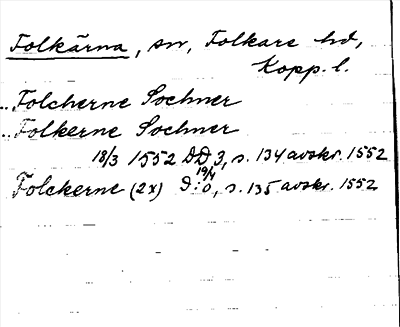 Folkärna, sn, Folkare hd,
Kopp. l.
..Folcherne Sochner
..Folkerne Sochner
18/3 1552 DD 3, s. 134 avskr. 1552
Folckerne (2x) D:o 19/4, s. 135 avskr. 1552